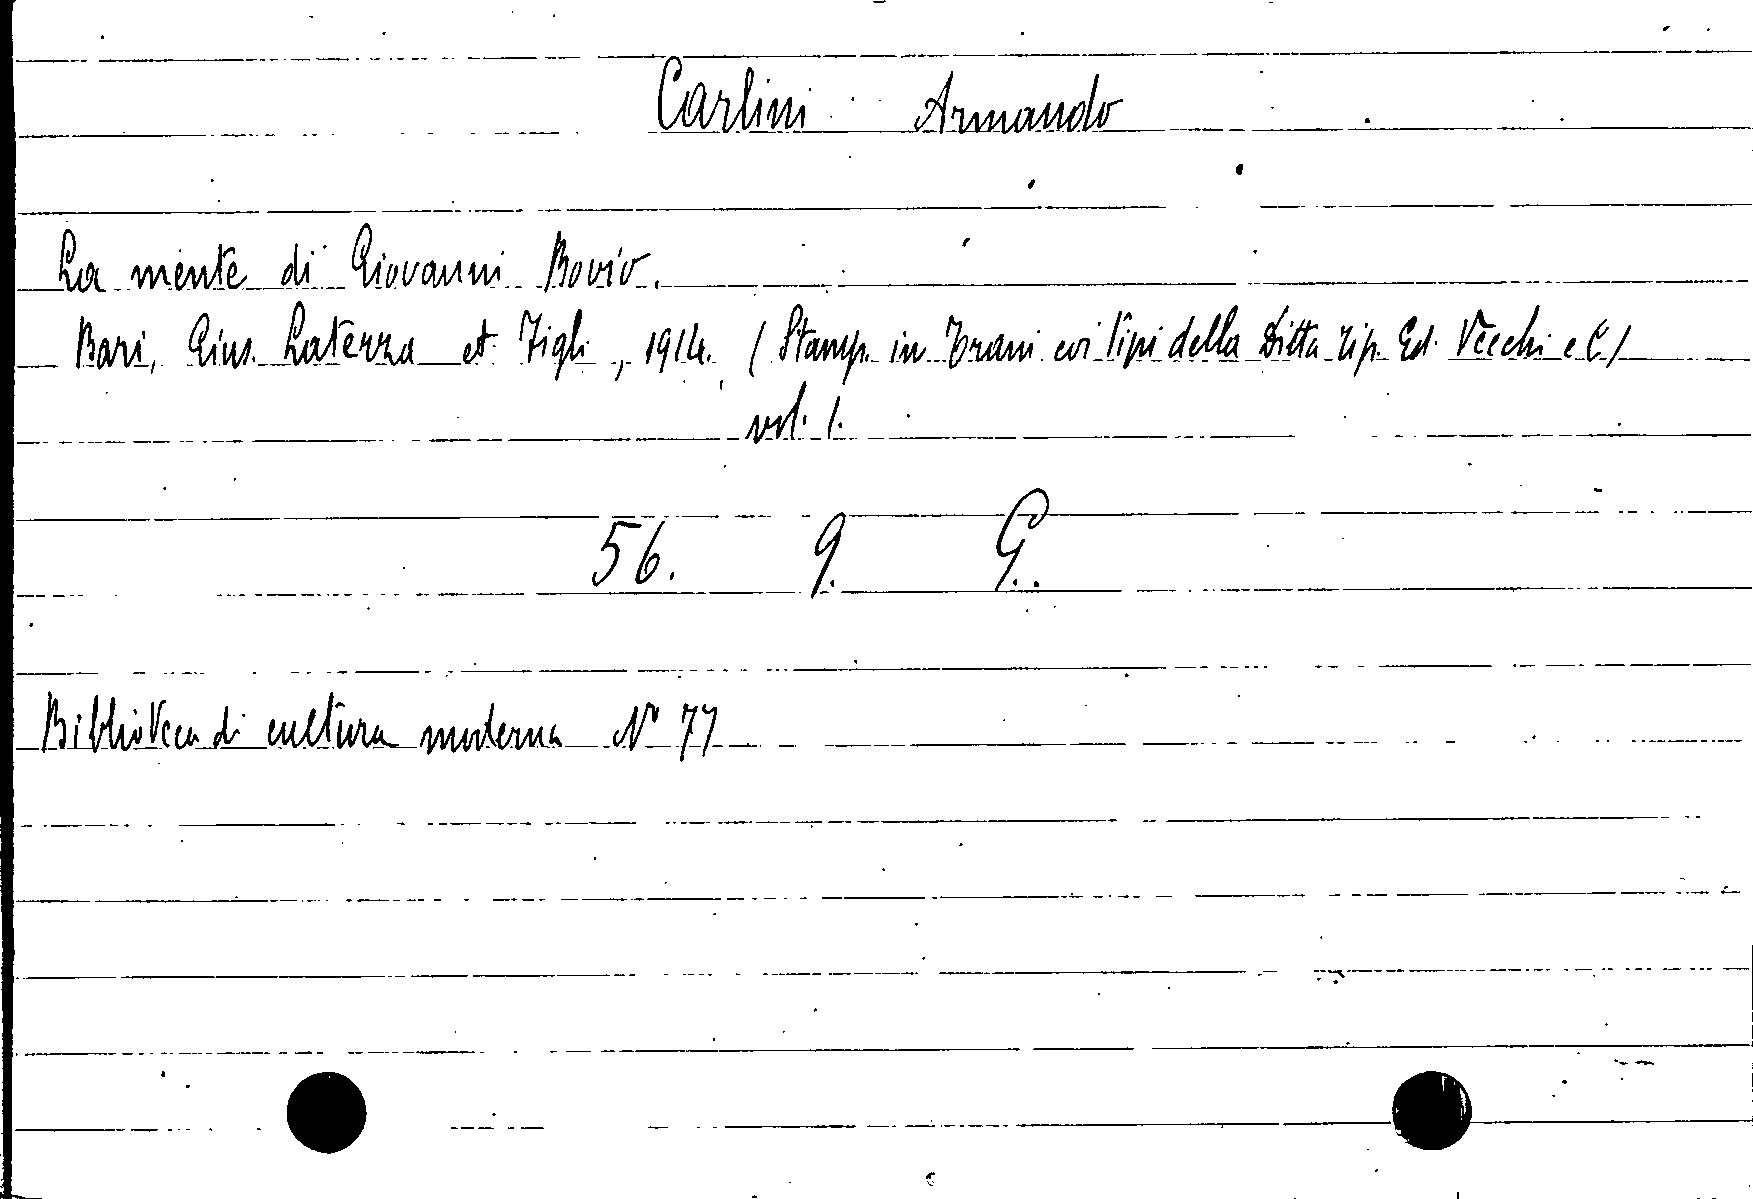 Carlini Armando
La mente di Giovanni Bovio.
Bari, Gius. Laterza et Figli, 1914. (Stamp. in Trani coi tipi della Ditta Tip. Ed. Vecchi e C)
vol. 1.
56. 9. G.
Biblioteca di cultura moderna No 77